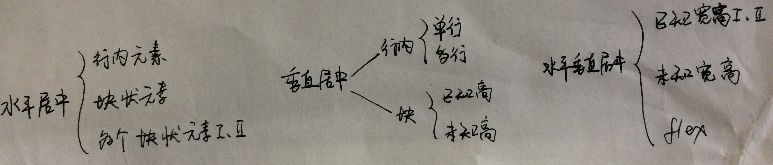 水平居中
行内元素
块状元素
多个块状元素I、II
垂直居中
行内
单行
多行
块
已知高
未知高
水平垂直居中
已知宽高I、II
未知宽高
flex